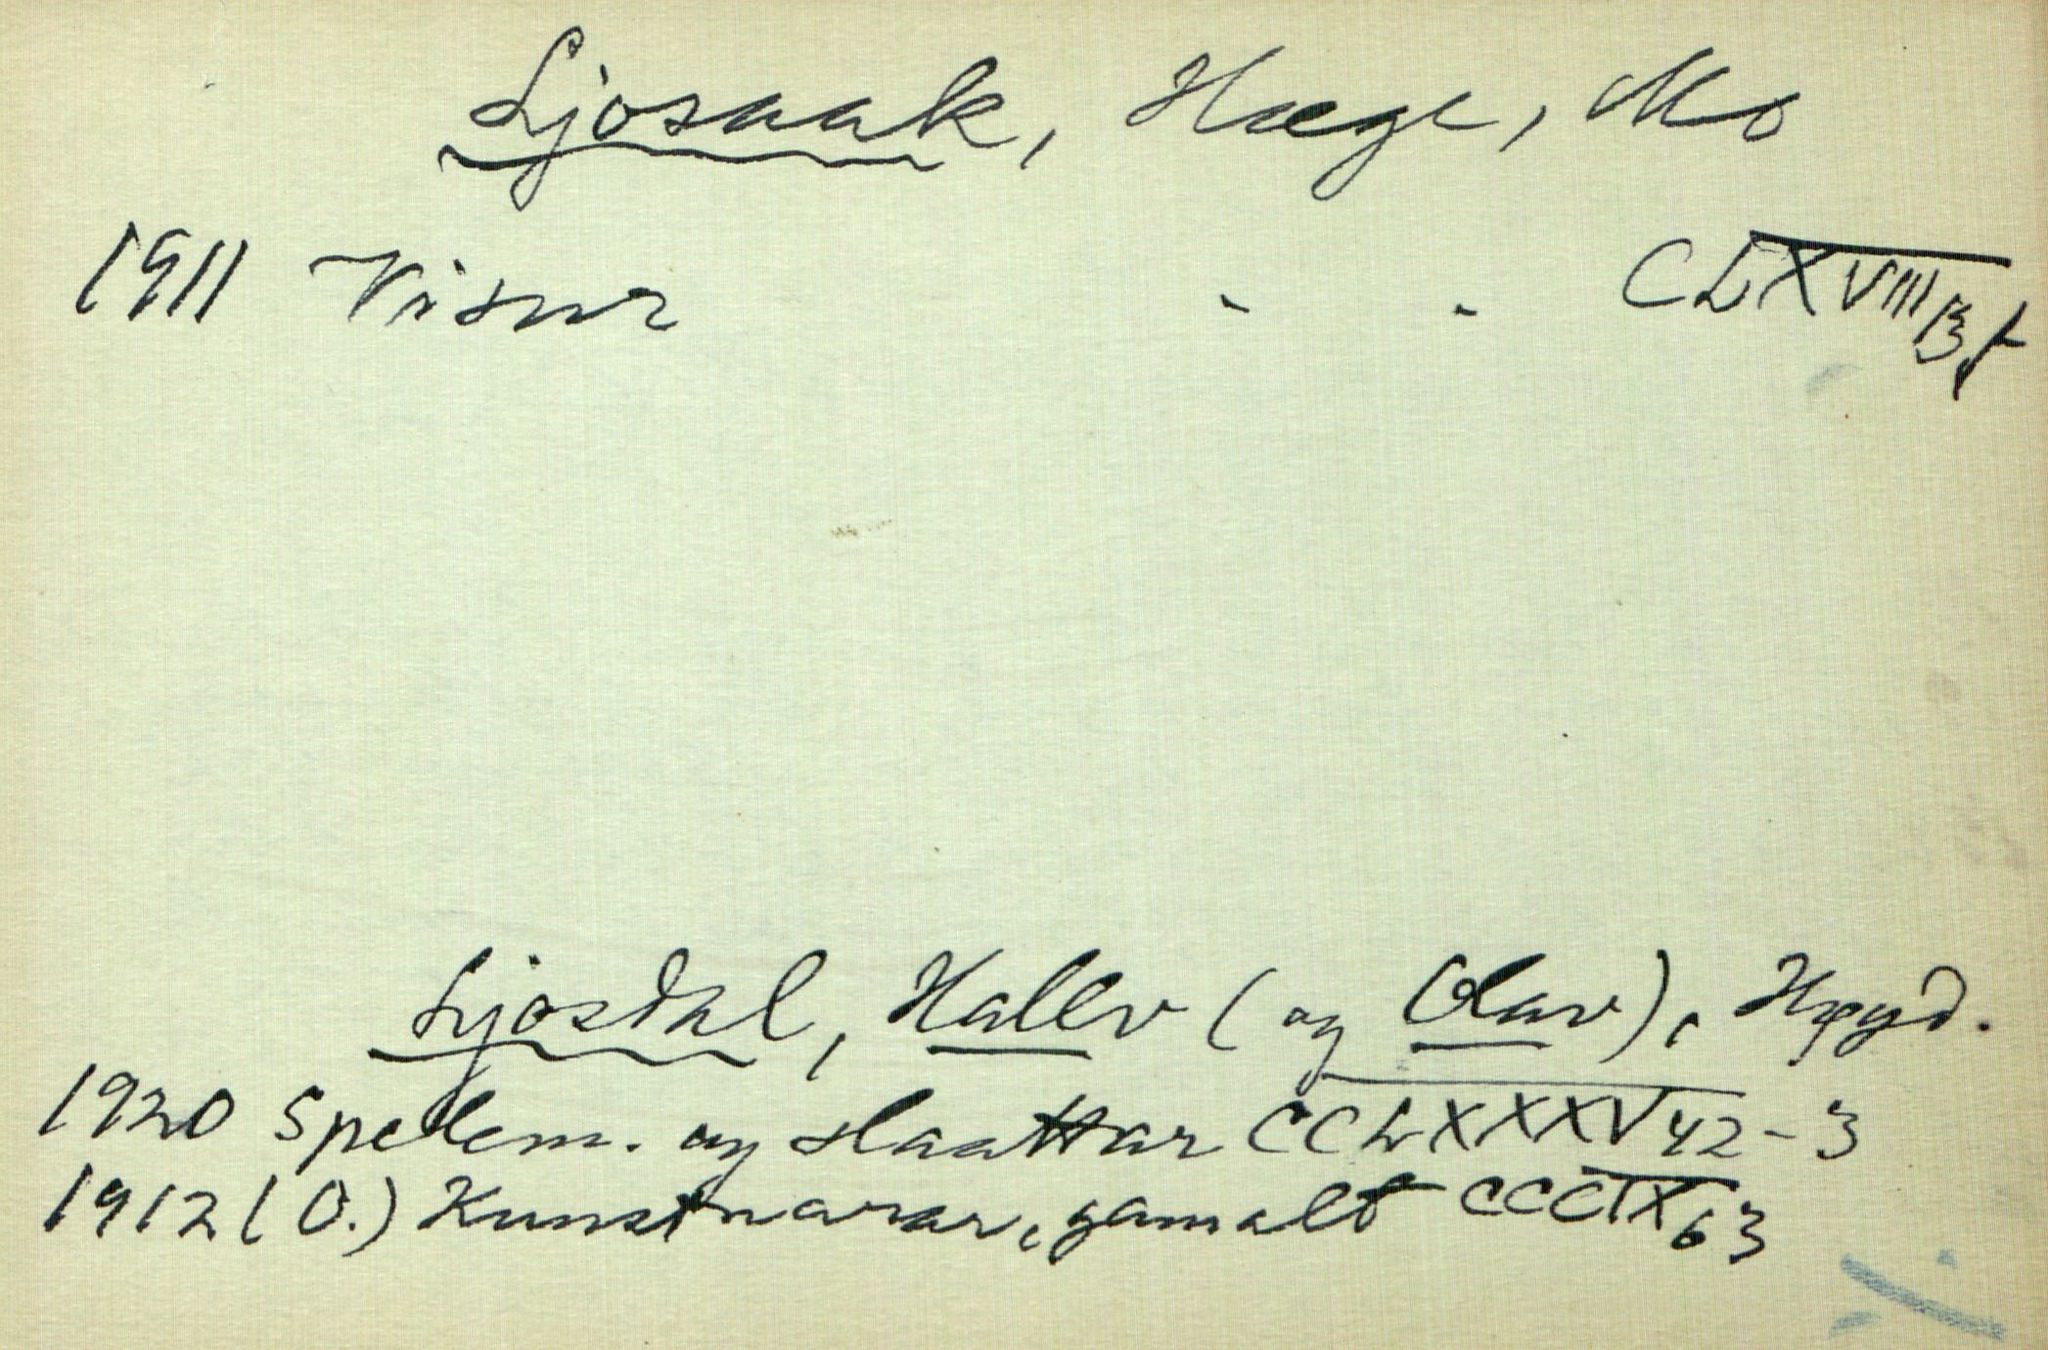 Ljosaak, Hæge, Mo
1911 Visur - - CLXVIII 13 f
Ljosdal, Hallv (og Olav), Høyd.
1920 Spelem. og slaattar CCLXXXV 42-3
1912 (O.) Kunstnarar, gamalt CCCIX 63